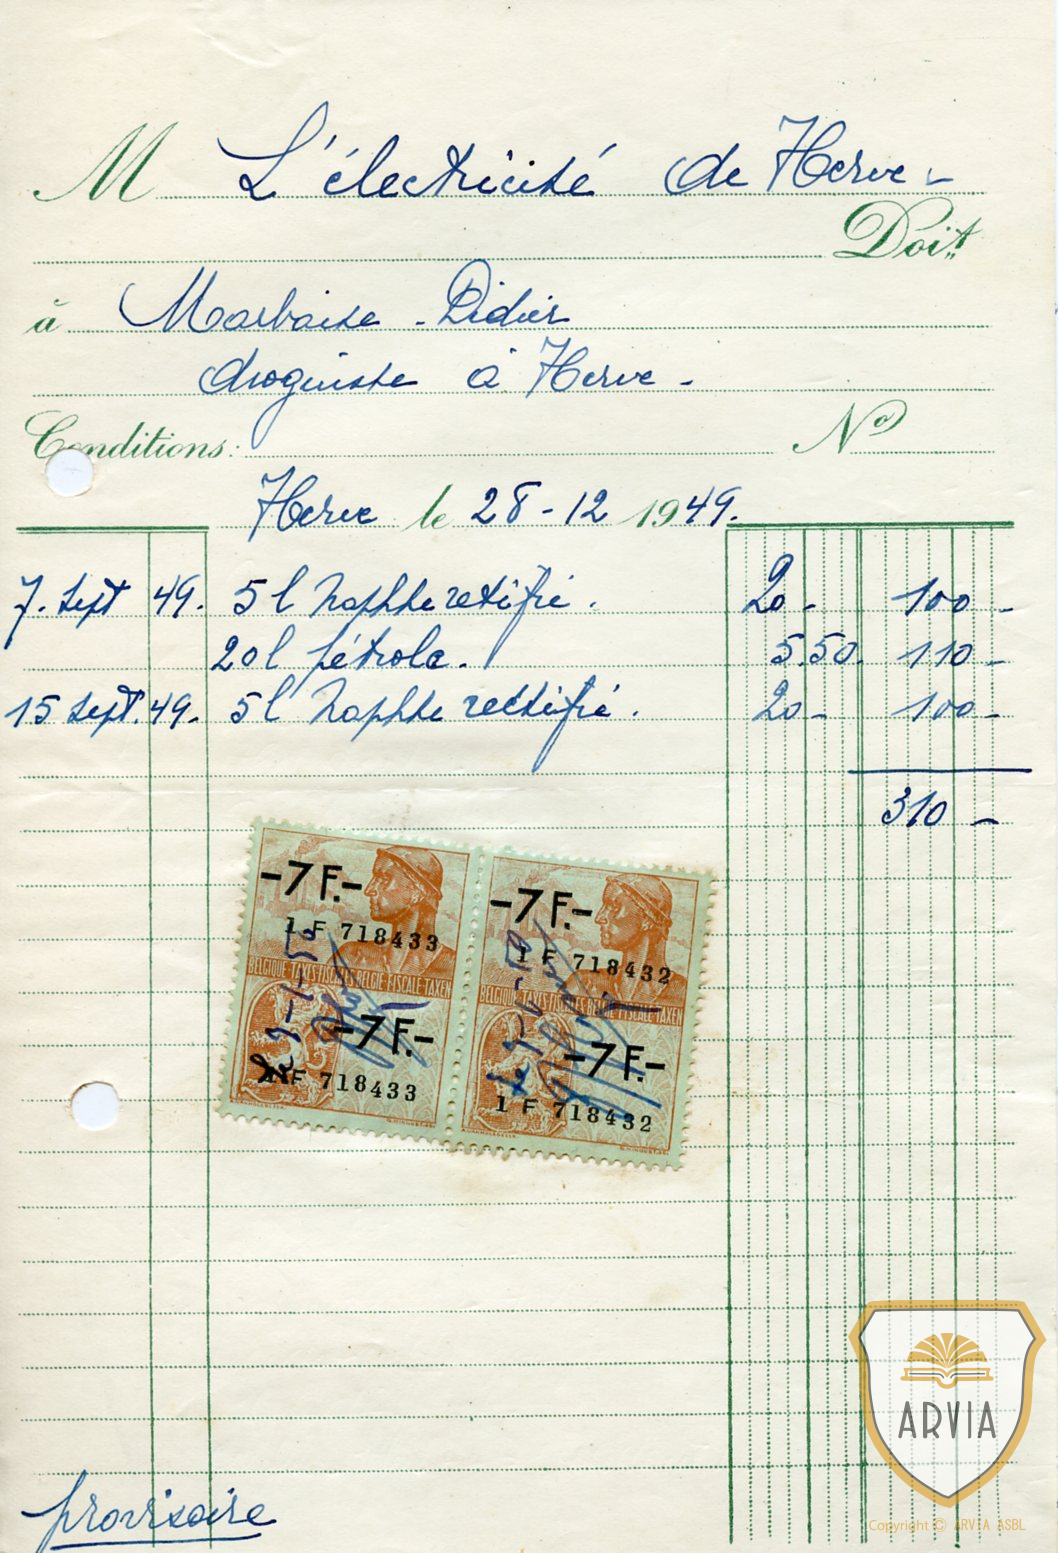 M L'électricité de Herve -
Doit
à Marbaise - Didier
droguiste à Herve -
Conditions: No
Herve le 28-12 1949.
7. Sept 49. 5 l naphte rectifié. 20 - 100 -
20 l pétrole. 5.50. 110 -
15 Sept. 49. 5 l naphte rectifié. 20 - 100 -
310 -
-7 F.- -7 F.-
1 F 718433 1 F 718432
BELGIQUE-TAXES FISC BELGIË-FISCALE TAXEN BELGIQUE-TAXES FISC BELGIË-FISCALE TAXEN
-7 F.- -7 F.-
1 F 718433 1 F 718432
provisoire
ARVIA
Copyright © ARVIA ASBL